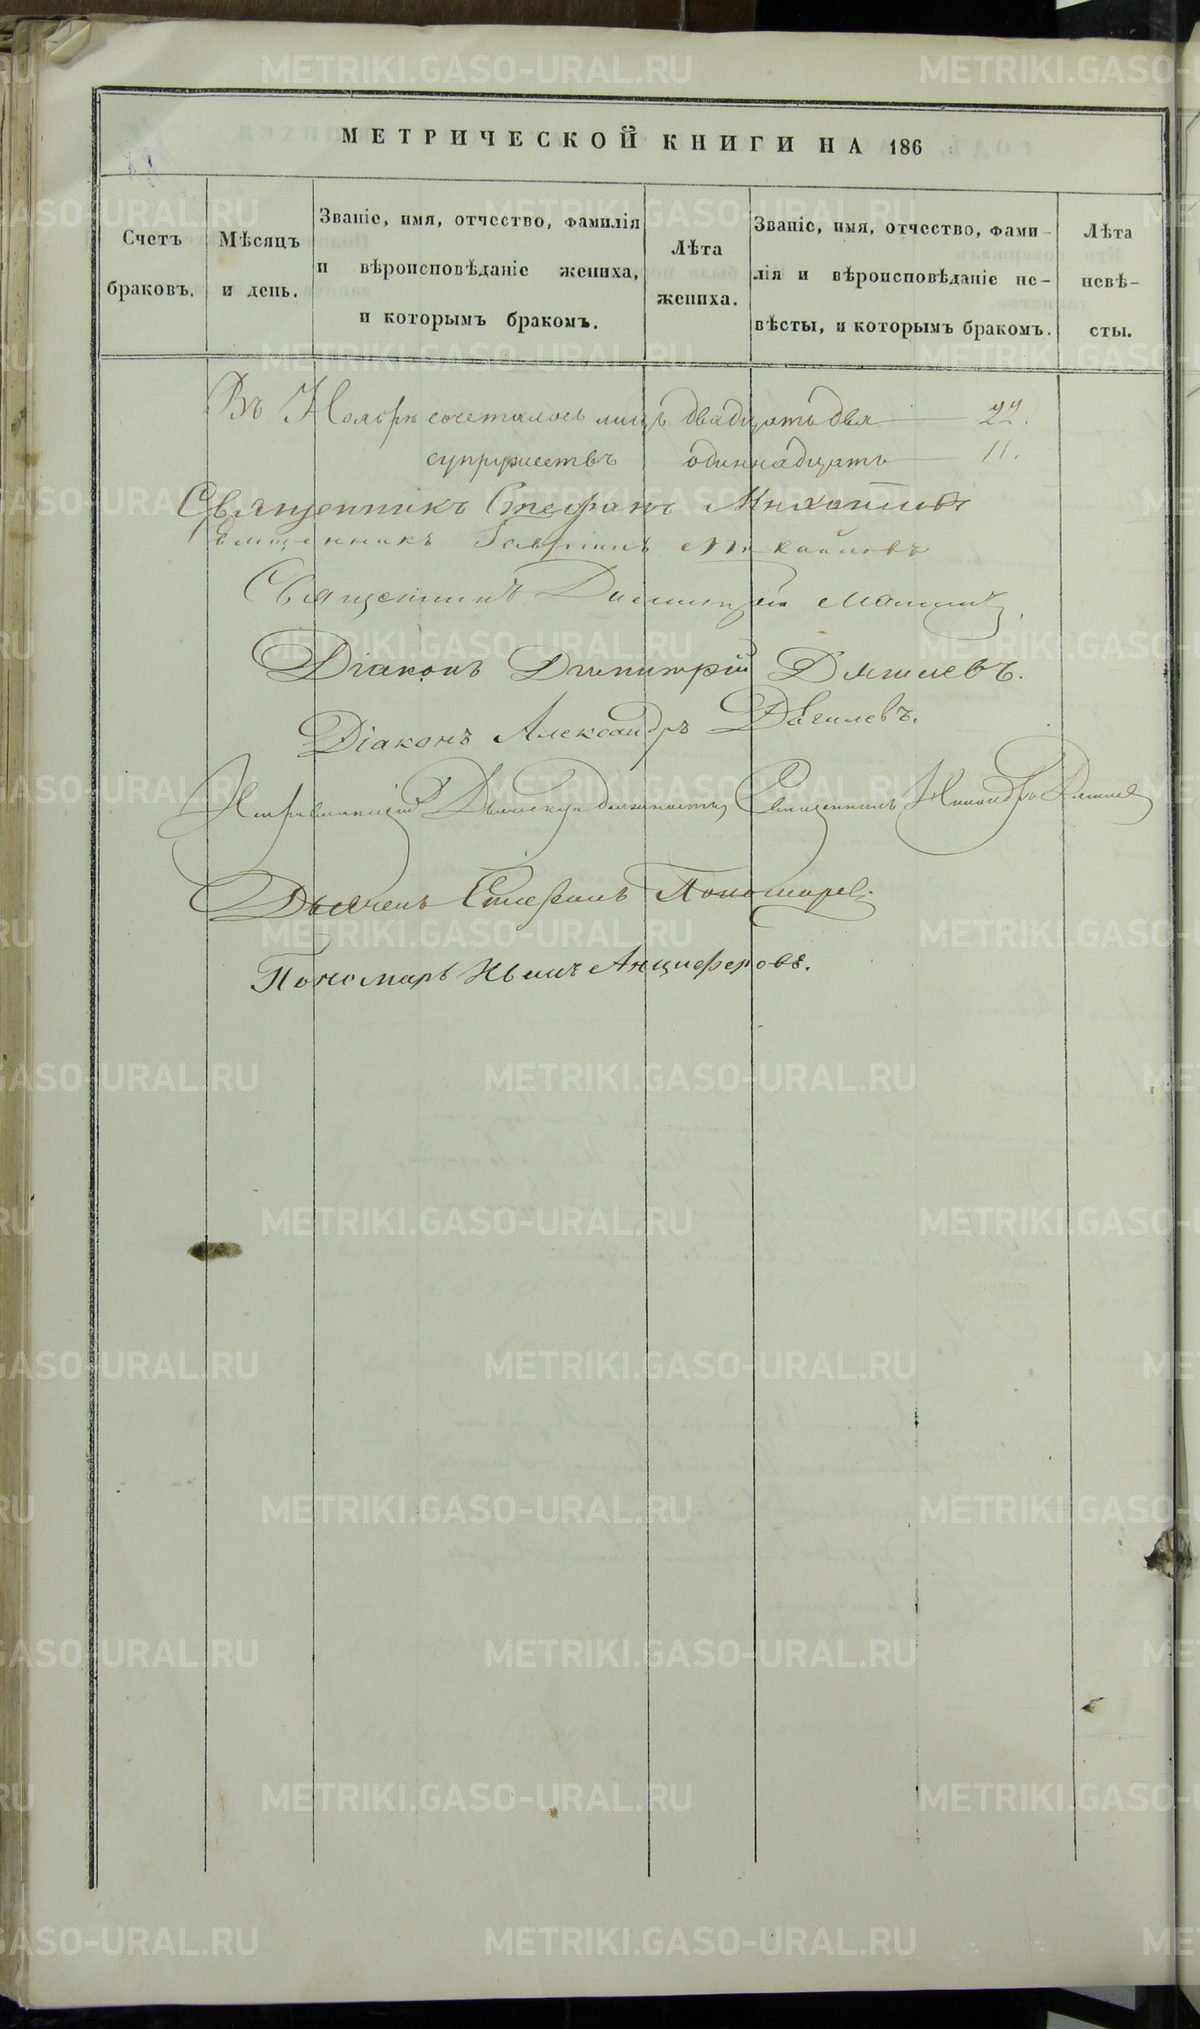 МЕТРИЧЕСКОЙ КНИГИ НА 186
Счетъ
браковъ.
Мѣсяцъ
и день.
Званіе, имя, отчество, фамилія
и вѣроисповѣданіе жениха,
и которымъ бракомъ.
Лѣта
жениха.
Званіе, имя, отчество, фами-
лія и вѣроисповѣданіе не-
вѣсты, и которымъ бракомъ.
Лѣта
невѣ-
сты.
Въ Ноябрѣ сочеталось лицъ двадцать два 22.
супружествъ одиннадцать 11.
Священникъ Стефанъ Михайловъ
Священникъ Гавріилъ Михайловъ
Священникъ Димитрій
Діаконъ Димитрій
Діаконъ Александръ
Исправляющій должность Священникъ Никандръ
Дьячекъ Стефанъ Пономаревъ
Пономарь Анциферовъ.
METRIKI.GASO-URAL.RU